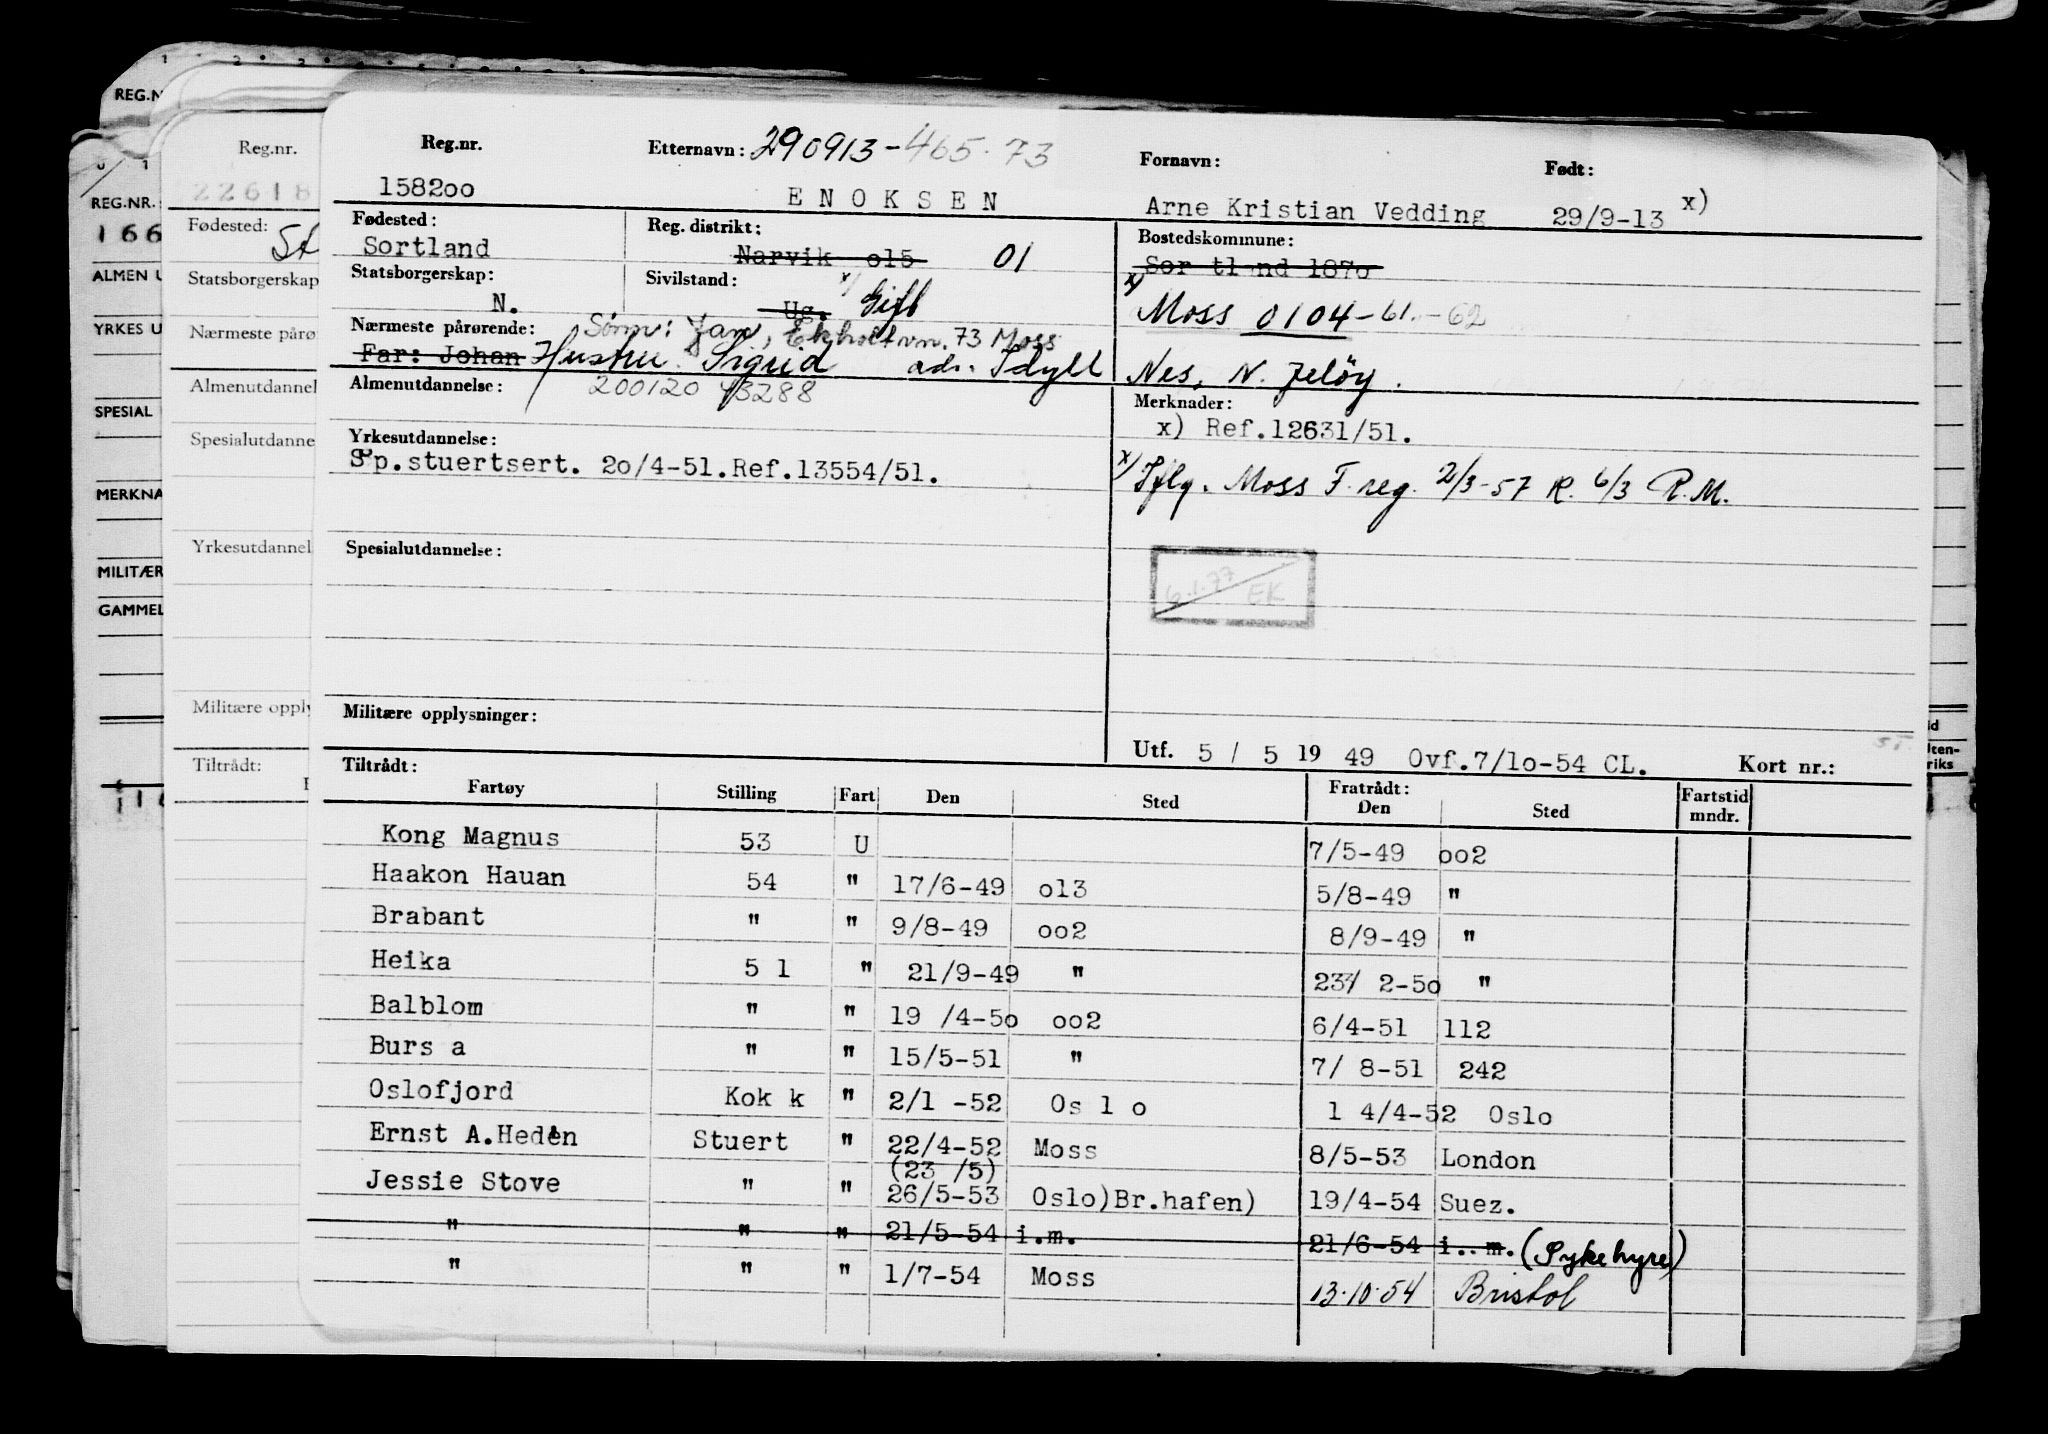 REG.N
Reg.nr.
22618
REG.NR.
166
Fødested:
St
ALMEN U
Statsborgerskap
YRKES U
Nærmeste pårø
Almenutdannel
SPESIAL
Spesialutdanne
MERKNA
Yrkesutdannel
MILITÆR
GAMMEL
Militære opply
Tiltrådt:
Reg.nr. Etternavn: 290913-465.73 Fornavn: Født:
158200 E N O K S E N Arne Kristian Vedding 29/9-13 x)
Fødested: Reg. distrikt: Bostedskommune:
Sortland Narvik o15 01 Sor tland 1870
Statsborgerskap: Sivilstand: x/
N. Ug. Gift Moss 0104-61.-62
Nærmeste pårørende: Sønn: Jan, Ekholtvn. 73 Moss
Far: Johan Hustru: Sigrid adr. Idyll Nes, N. Jeløy.
Almenutdannelse: 200120 43288 Merknader:
x) Ref.12631/51.
Yrkesutdannelse:
Sp.stuertsert. 2o/4-51.Ref.13554/51.
x/ Iflg. Moss F.reg. 2/3-57 K. 6/3 R.M.
Spesialutdannelse:
6.1.77 EK
Militære opplysninger:
Utf. 5 / 5 19 49 Ovf.7/1o-54 CL. Kort nr.:
Tiltrådt: Fratrådt:
Fartøy Stilling Fart Den Sted Den Sted Fartstid mndr.
Kong Magnus 53 U 7/5-49 oo2
Haakon Hauan 54 " 17/6-49 o13 5/8-49 "
Brabant " " 9/8-49 oo2 8/9-49 "
Heika 5 1 " 21/9-49 " 23/ 2-5o "
Balblom " " 19 /4-5o oo2 6/4-51 112
Burs a " " 15/5-51 " 7/ 8-51 242
Oslofjord Kok k " 2/1 -52 Os l o 1 4/4-52 Oslo
Ernst A.Heden Stuert " 22/4-52 Moss 8/5-53 London
(23 /5)
Jessie Stove " " 26/5-53 Oslo)Br.hafen) 19/4-54 Suez.
" " " 21/5-54 i.m. 21/6-54 i..m. (Sykehyre)
" " " 1/7-54 Moss 13.10.54 Bristol